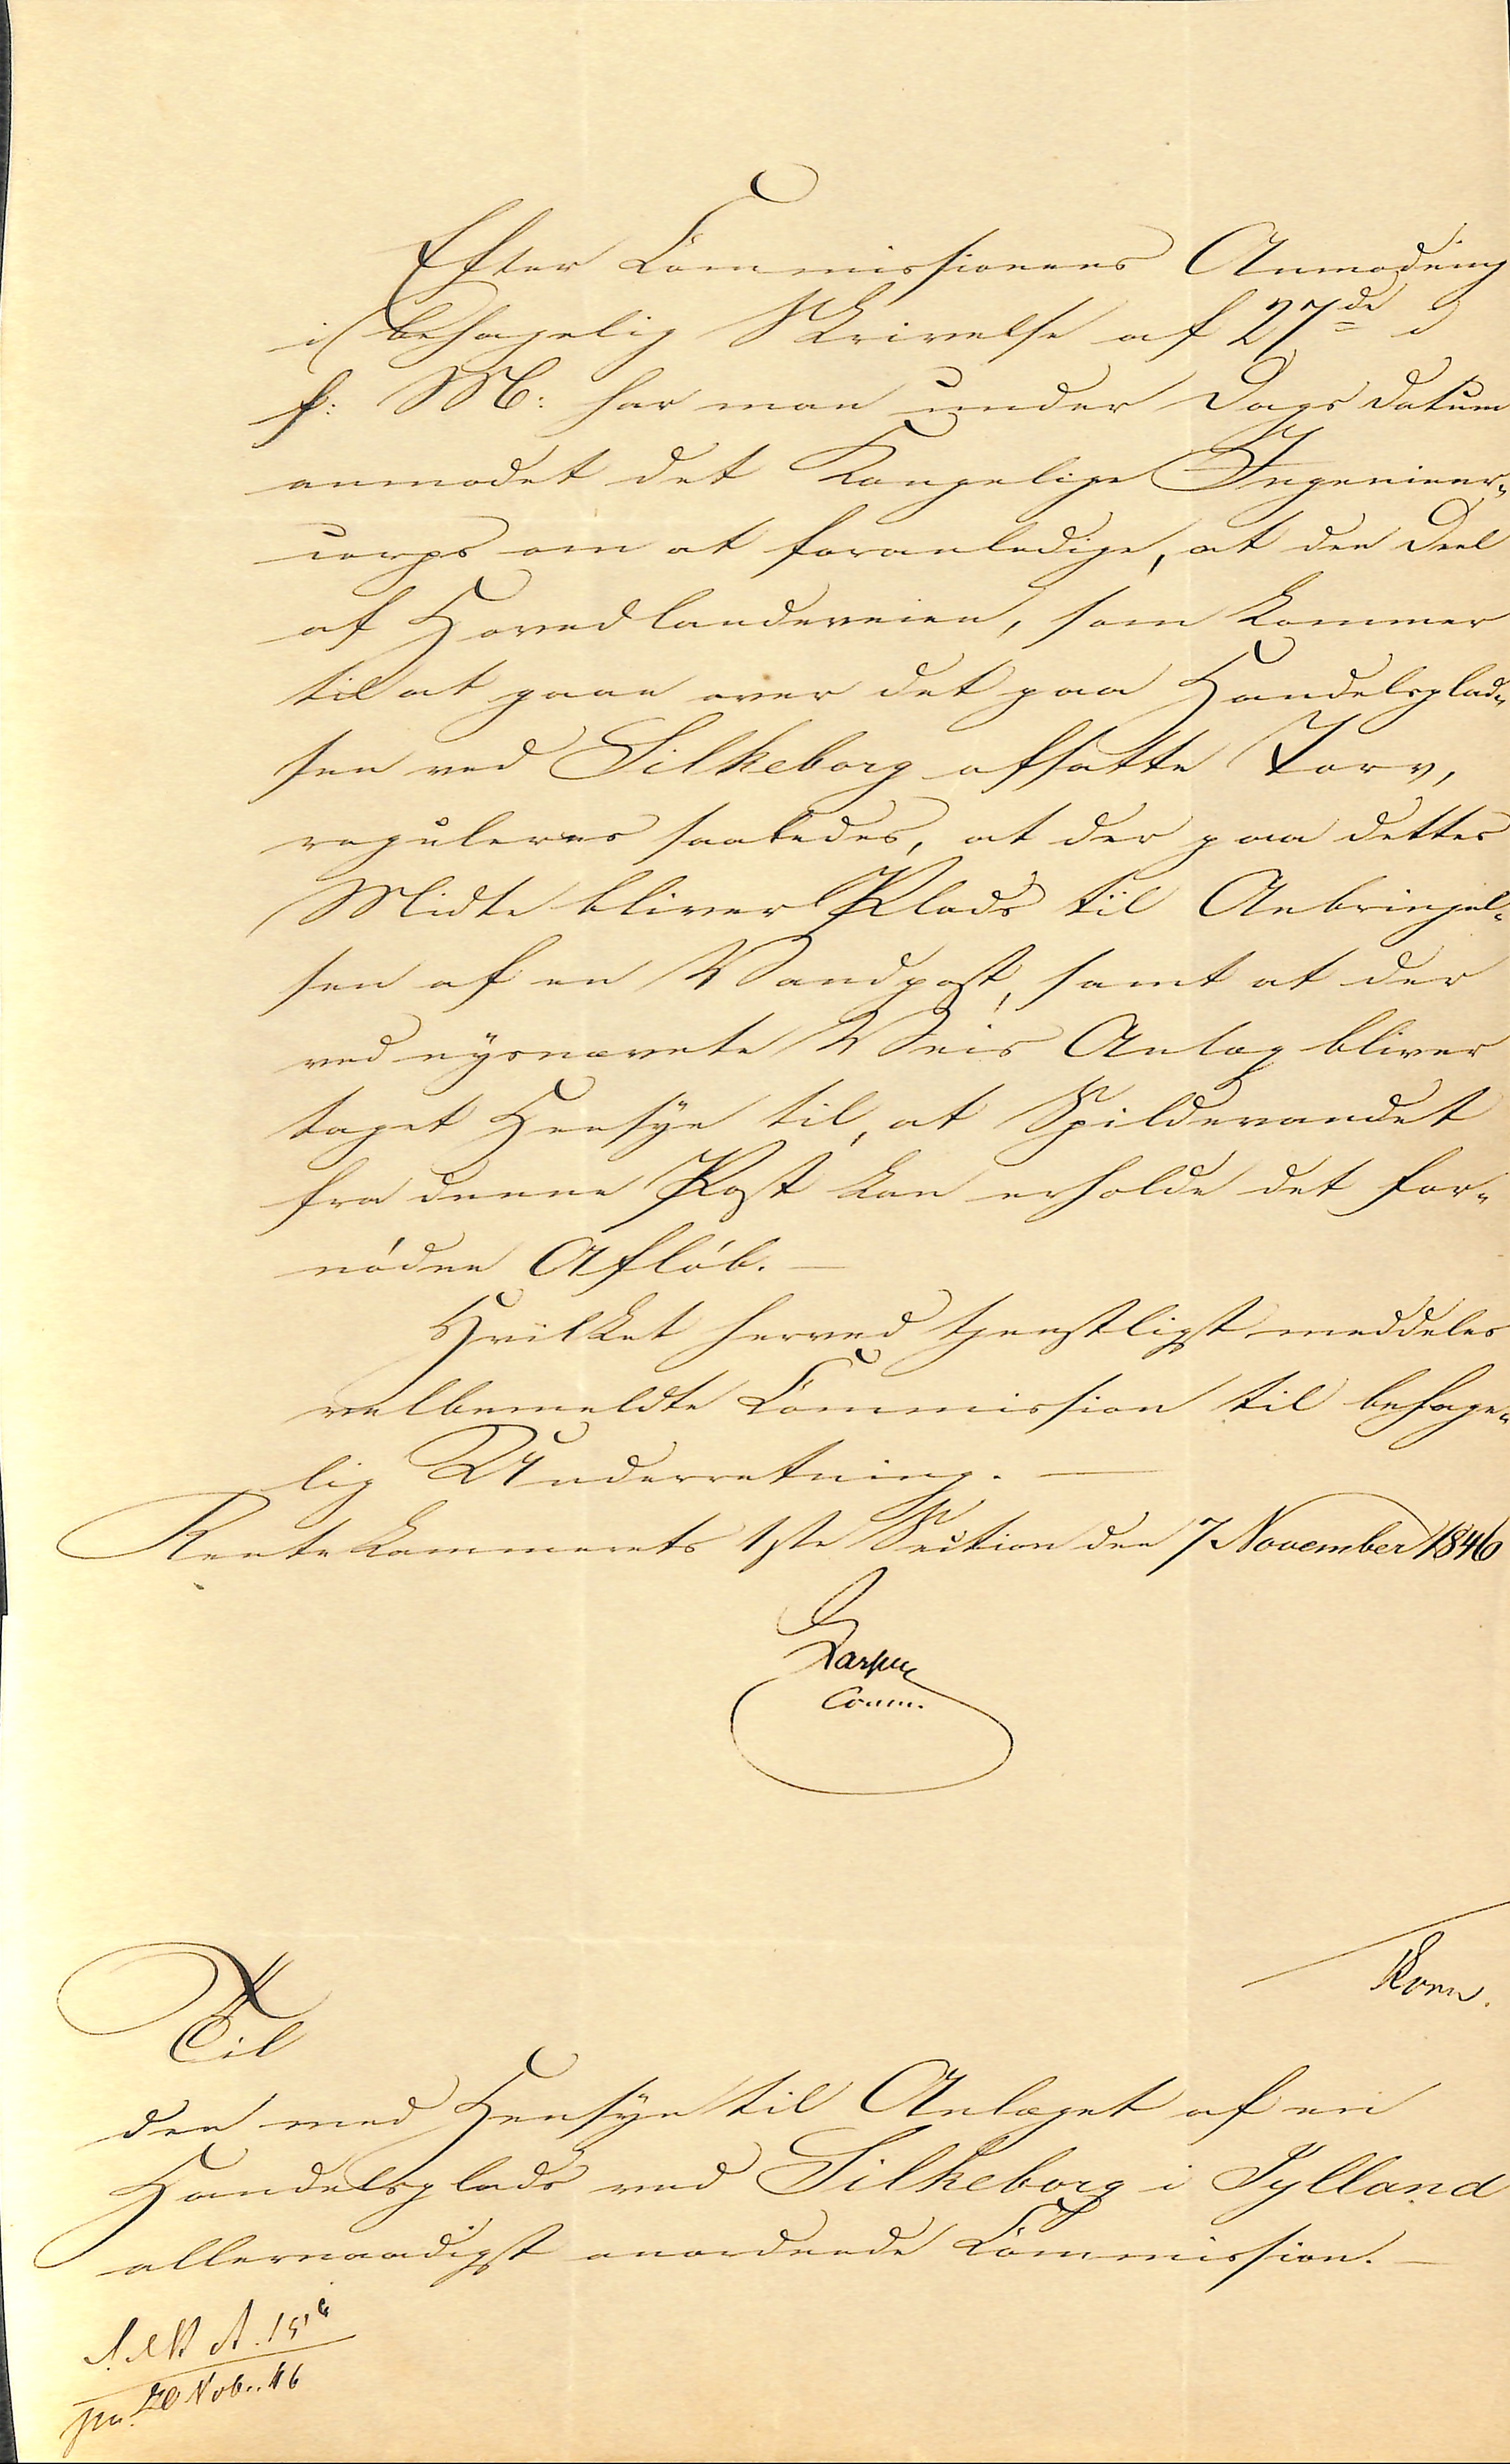 Efter Commissionens Anmodning
i behagelig Skrivelse af 27de i
f: M: har man under Dags Datum
anmodet det Kongelige Ingenieur-
corps om at foranledige, at den Deel
af Hovedlandeveien, som kommer
til at gaae over det paa Handelsplad-
sen ved Silkeborg afsatte Torv,
reguleres saaledes, at der paa dettes
Midte bliver Plads til Anbringel-
sen af en Vandpost, samt at der
ved nysnævnte Veis Anlæg bliver
taget Hensyn til, at Spildevandet
fra denne Post kan erholde det for-
nödne Aflöb. —
Hvilket herved tjenstligst meddeles
velbemeldte Commission til behage-
lig Underretning. —
Rentekammerets 1ste Section den 7 November 1846
Comm.
Korn.
Til
den med Hensyn til Anlæget af en
Handelsplads ved Silkeborg i Jylland
allernaadigst anordnede Commission. —
20 Nob.. 46